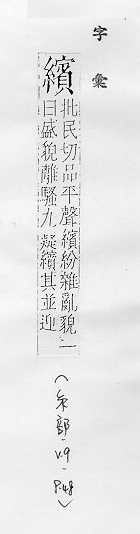 字彙
繽
批民切品平聲繽紛雜亂貌一
曰盛貌離騷九疑繽其並迎
(糸部-V.9-P.48)